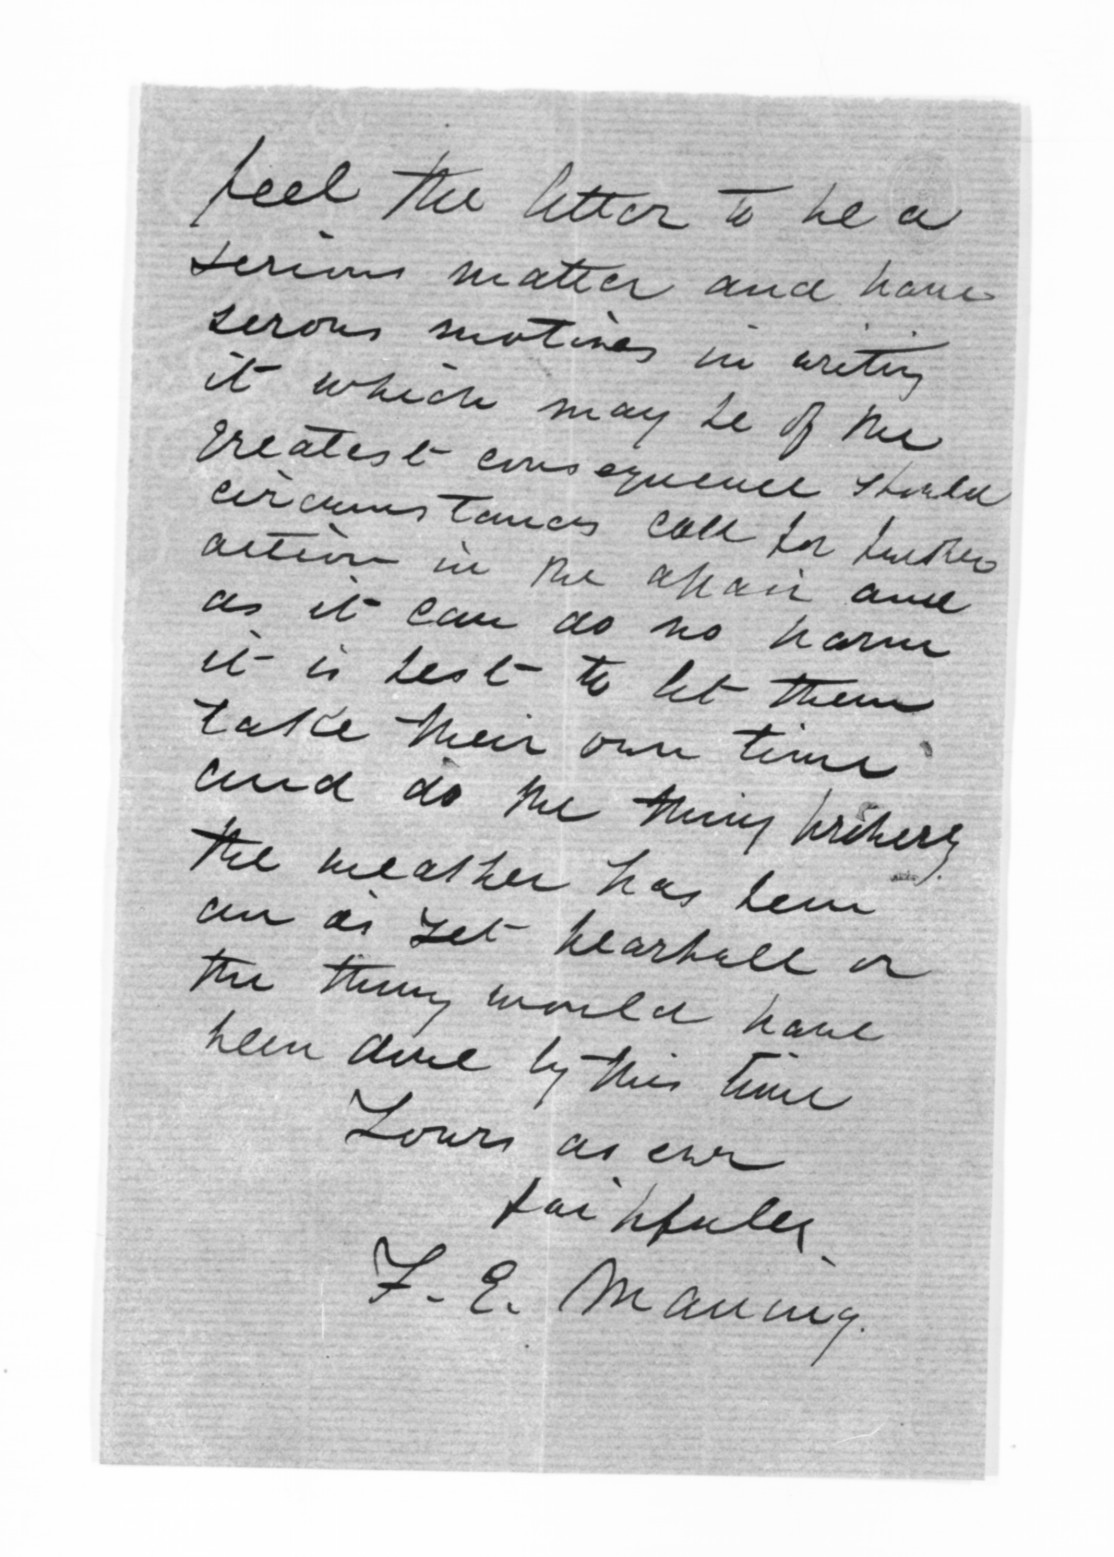 feel the letter to be a
serious matter and have
serous motives in writing
it which may be of the
greatest consequence should
circumstances call for further
action in the affair and
as it can do no harm
it is best to let them
take their own time
and do the thing
the weather has been
an as yet fearfull or
the thing would have
been done by this time
Yours as ever
faithfully
F. E. Maning.